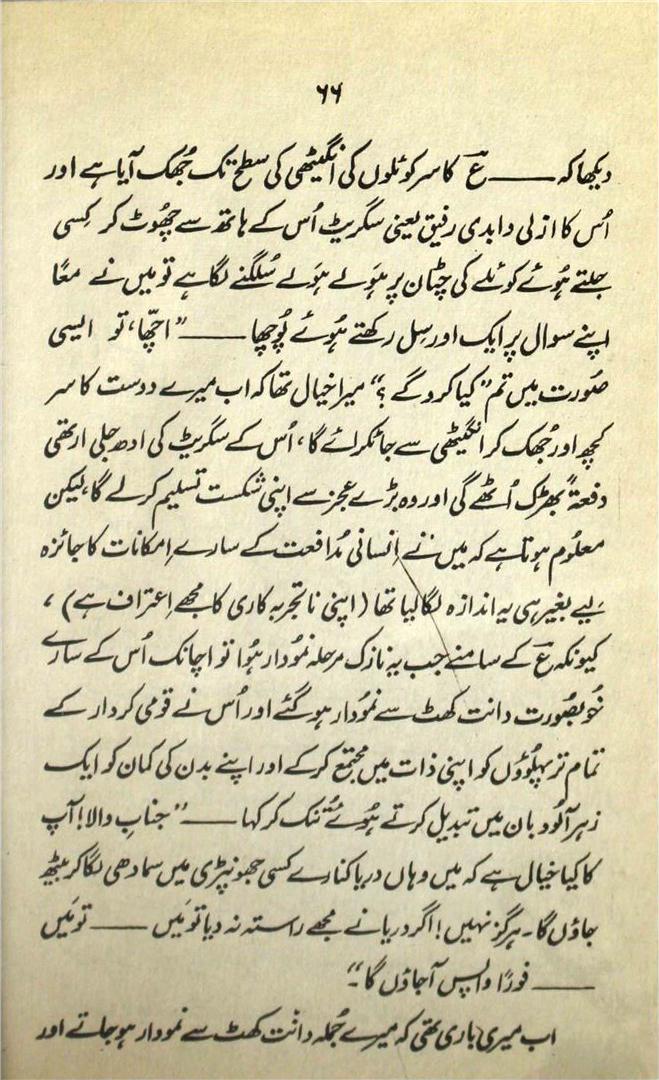 ۶۶
دیکھا کہ —— عؔ کا سر کوئلوں کی انگیٹھی کی سطح تک جُھک آیا ہے اور
اُس کا ازلی و ابدی رفیق یعنی سگریٹ اُس کے ہاتھ سے چھوٹ کر کِسی
جلتے ہُوئے کوئلے کی چٹان پر ہَولے ہَولے سُلگنے لگا ہے تو مَیں نے معًا
اپنے سوال پر ایک اور سِل رکھتے ہُوئے پُوچھا —— ”اچھا، تو ایسی
صُورت میں تم” کیا کرو گے ؟“ میرا خیال تھا کہ اب میرے دوست کا سر
کچھ اور جُھک کر انگیٹھی سے جا ٹکرائے گا، اُس کے سگریٹ کی ادھ جلی ارتھی
دفعۃً بھڑک اُٹھے گی اور وہ بڑے عجز سے اپنی شکست تسلیم کر لے گا، لیکن
معلُوم ہوتا ہے کہ میں نے اِنسانی مُدافعت کے سارے اِمکانات کا جائزہ
لیے بغیر ہی یہ اندازہ لگا لیا تھا (اپنی ناتجربہ کاری کا مجھے اِعتراف ہے) ،
کیونکہ عؔ کے سامنے جب یہ نازک مرحلہ نمُودار ہُوا تو اچانک اُس کے سارے
خُوبصُورت دانت کھٹ سے نمُودار ہو گئے اور اُس نے قومی کردار کے
تمام تر پہلوؤں کو اپنی ذات میں مجتمع کرکے اور اپنے بدن کی کمان کو ایک
زہر آلُود بان میں تبدیل کرتے ہُوئے تُنک کر کہا —— ”جنابِ والا! آپ
کا کیا خیال ہے کہ میں وہاں دریا کنارے کسی جھونپڑی میں سمادھی لگا کر بیٹھ
جاؤں گا۔ ہرگز نہیں! اگر دریا نے مجھے راستہ نہ دیا تو مَیں —— تو مَیں
—— فورًا واپس آجاؤں گا۔“
اب میری باری تھی کہ میرے جُملہ دانت کھٹ سے نمودار ہو جاتے اور